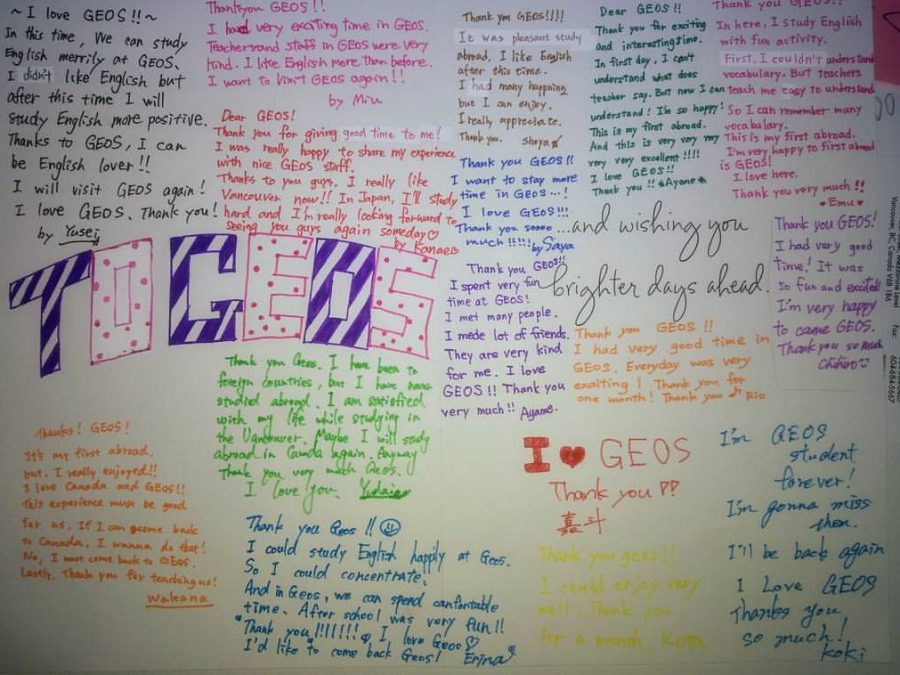 ~ I love GEOS!! ~
In this time, We can study
English merrily at GEOS.
I didn't like English but
after this time I will
study English more positive.
Thanks to GEOS, I can
be English lover!!
I will visit GEOS again!
I love GEOS. Thank you!
by Yusei
Thankyou GEOS!!
I had very exciting time in GEOS.
Teachersand staff in GEOS were very
kind. I like English more than before.
I want to visit GEOS again!!
by Miu
Dear GEOS!
Thank you for giving good time to me!
I was really happy to share my experience
with nice GEOS staff.
Thanks to you guys. I really like
Vancouver now!! In Japan, I'll study
hard and I'm really looking forward to
seeing you guys again someday♡
by Kanae
Thank you GEOS!!!!
It was pleasant study
abroad. I like English
after this time.
I had many happning
but I can enjoy.
I really appreciate.
Thank you. Shoya
Thank you GEOS!!
I want to stay more
time in GEOS...!
I love GEOS!!!
Thank you soooo
much!!!!! by Saya
Dear GEOS!!
Thank you for exciting
and interesting time.
In first day, I can't
understand what does
teacher say. But now I can
understand! I'm so happy!
This is my first abroad.
And this is very very very
very very excellent!!!!
I love GEOS!!
Thank you!! Ayane
Thank you GEOS!!
In here, I study English
with fun activity.
First, I couldn't understand
vocabulary. But teachers
teach me easy to understand.
So I can remember many
vocabulary.
This is my first abroad.
I'm very happy to first abroad
is GEOS!
I love here.
Thank you very much!!
Emu
...and wishing you
brighter days ahead.
TO GEOS
Thank you GEOS!!
I spent very fun
time at GEOS!
I met many people.
I mede lot of friends.
They are very kind
for me. I love
GEOS!! Thank you
very much!! Ayame.
Thank you GEOS!
I had very good
time! It was
so fun and excited!
I'm very happy
to came GEOS.
Thank you so much
Chihiro
Vancouver, BC, Canada V6B 1B6
604-684-5667
Thank you GEOS!!
I had very good time in
GEOS. Everyday was very
exaiting! Thank you for
one month! Thank you Rio
Thank you Geos. I have been to
foreign countries, but I have none
studied abroad. I am satisfied
with my life while studying in
the Vancouver. Maybe I will study
abroad in Canada again. Anyway
Thank you very much Geos.
I love you. Yudai
Thanks! GEOS!
It's my first abroad.
but. I really enjoyed!!
I love Canada and GEOS!!
this experience must be good
for us. If I can come back
to Canada, I wanna do that!
No, I must come back to GEOS.
Lastly, Thank you for teaching us!
Wakana
Thank you Geos!!
I could study English happily at Geos.
So I could concentrate.
And in Geos, we can spend canfortable
time. After school was very fun!!
"Thank you!!!!!!! I love Geos♡
I'd like to come back Geos! Erina
I ♥ GEOS
Thank you!!
嘉斗
Thank you geos!!
I could enjoy very
well. Thank you
for a month. Kota
I'm GEOS
student
forever!
I'm gonna miss
them.
I'll be back again
I Love GEOS
Thanks you
so much!
koki